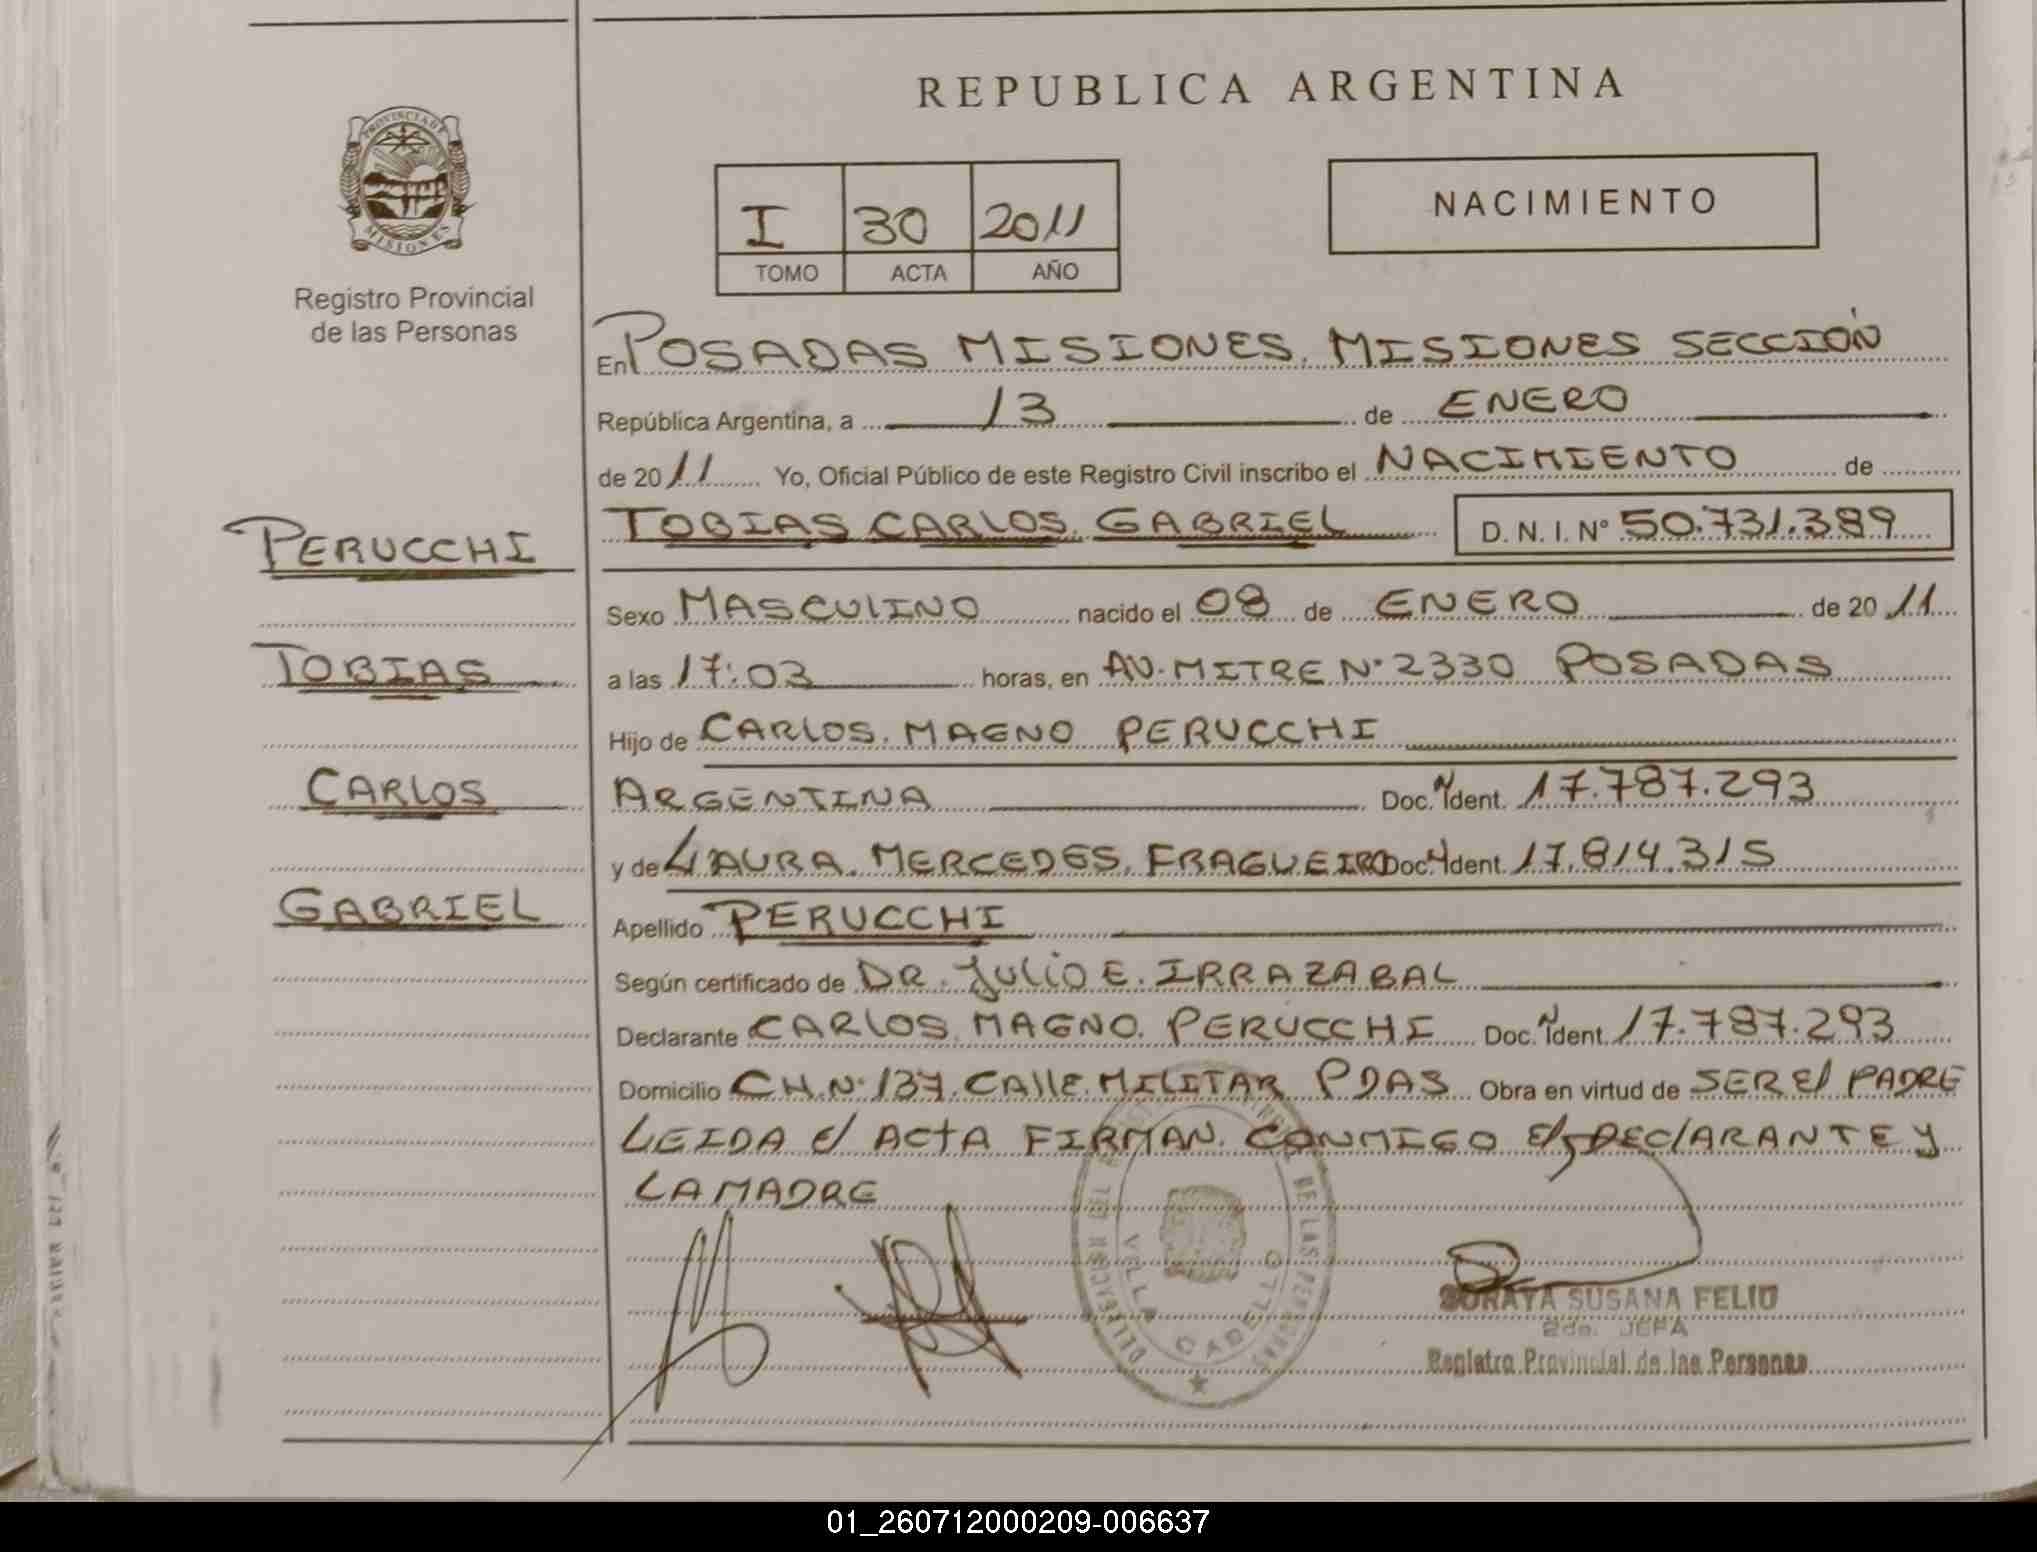 REPUBLICA ARGENTINA
PROVINCIA DE
MISIONES
Registro Provincial
de las Personas
I 30 2011
TOMO ACTA AÑO
NACIMIENTO
En POSADAS MISIONES. MISIONES SECCIÓN
República Argentina, a 13 de ENERO
de 2011 Yo, Oficial Público de este Registro Civil inscribo el NACIMIENTO de
TOBIAS CARLOS. GABRIEL D. N. I. Nº 50.731.389
PERUCCHI
TOBIAS
CARLOS
GABRIEL
Sexo MASCULINO nacido el 08 de ENERO de 2011
a las 17:03 horas, en AV. MITRE Nº 2330 POSADAS
Hijo de CARLOS. MAGNO PERUCCHI
ARGENTINA Doc. Ident. 17.787.293
y de LAURA. MERCEDES. FRAGUEIRO Doc. Ident. 17.814.315
Apellido PERUCCHI
Según certificado de DR. JULIO E. IRRAZABAL
Declarante CARLOS. MAGNO. PERUCCHI Doc. Ident. 17.787.293
Domicilio CH. Nº 137. CALLE. MILITAR PDAS Obra en virtud de SER El PADRE
LEIDA el ACTA FIRMAN. CONMIGO El DECLARANTE y
LA MADRE
DE LAS PERSONAS
VILLA CABELLO
SORAYA SUSANA FELIU
2da. JEFA
Registro Provincial de las Personas
01_260712000209-006637